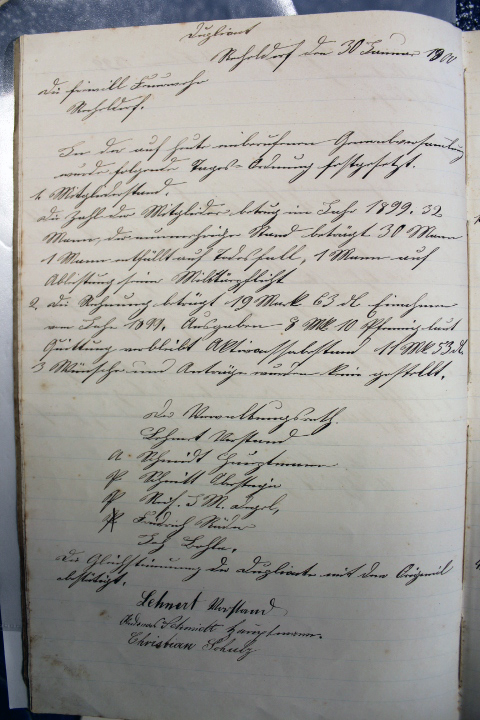 Duplicat
Roholdorf den 30 Januar 1900
Die freiwill Feuerwehr
Roholdorf.
In der auf heute einberufenen Generalversammlung
wurde folgende Tages-Ordnung festgesetzt.
1. Mitgliederstand.
Die Zahl der Mitglieder betrug im Jahr 1899. 32
Mann, der nunmehrige Stand beträgt 30 Mann
1 Mann entfällt auf Todesfall, 1 Mann auf
Ableistung seiner Militärpflicht
2. Die Rechnung beträgt 19 Mark 63 dl. Einnahmen
vom Jahr 1899. Ausgaben 8 Mk 10 Pfennig laut
Quittung verbleibt Aktivcassabestand 11 Mk 53 dl.
3 Wünsche und Anträge wurden kein gestellt.
Der Verwaltungsrath.
Lehnert Vorstand
A Schmidt Hauptmann
P Schmitt
P
Friedrich
Die Gleichstimmung der Duplicate mit dem Original
bestätigt.
Lehnert Vorstand
Andreas Schmidt Hauptmann.
Christian Schulz